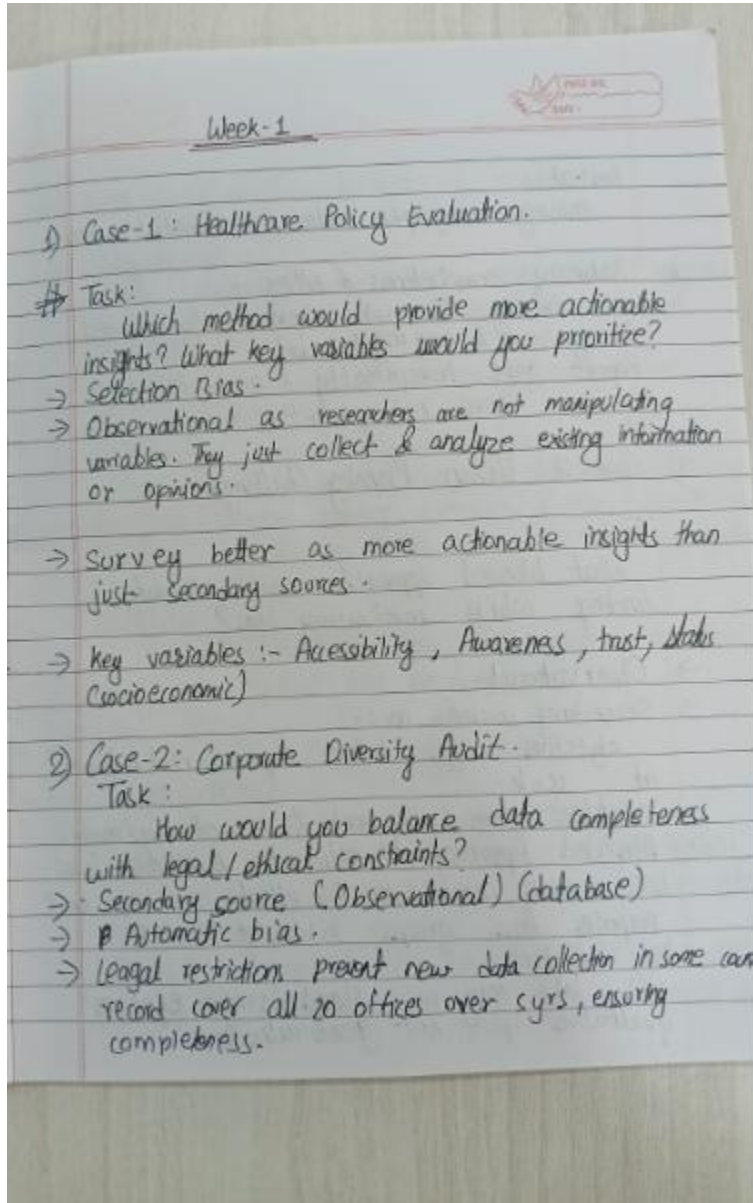 PAGE NO.
DATE:
Week-1
1) Case-1: Healthcare Policy Evaluation.
# Task:
Which method would provide more actionable
insights? What key variables would you prioritize?
→ Selection Bias.
→ Observational as researchers are not manipulating
variables. They just collect & analyze existing information
or opinions.
→ Survey better as more actionable insights than
just secondary sources.
→ key variables :- Accessibility, Awareness, trust, status
(socioeconomic)
2) Case-2: Corporate Diversity Audit.
Task:
How would you balance data completeness
with legal/ethical constraints?
→ Secondary source (Observational) (database)
→ Automatic bias.
→ Leagal restrictions prevent new data collection in some coun
record cover all 20 offices over 5yrs, ensuring
completeness.